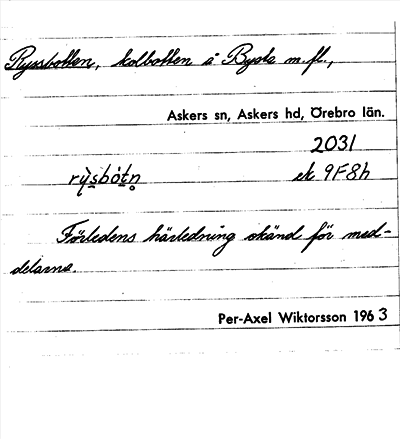 Ryssbotten, kolbotten å Bysta m.fl.,
Askers sn, Askers hd, Örebro län.
2031
rỳsbòtn̥ ek 9F8h
Förledens härledning okänd för med-
delarna.
Per-Axel Wiktorsson 1963